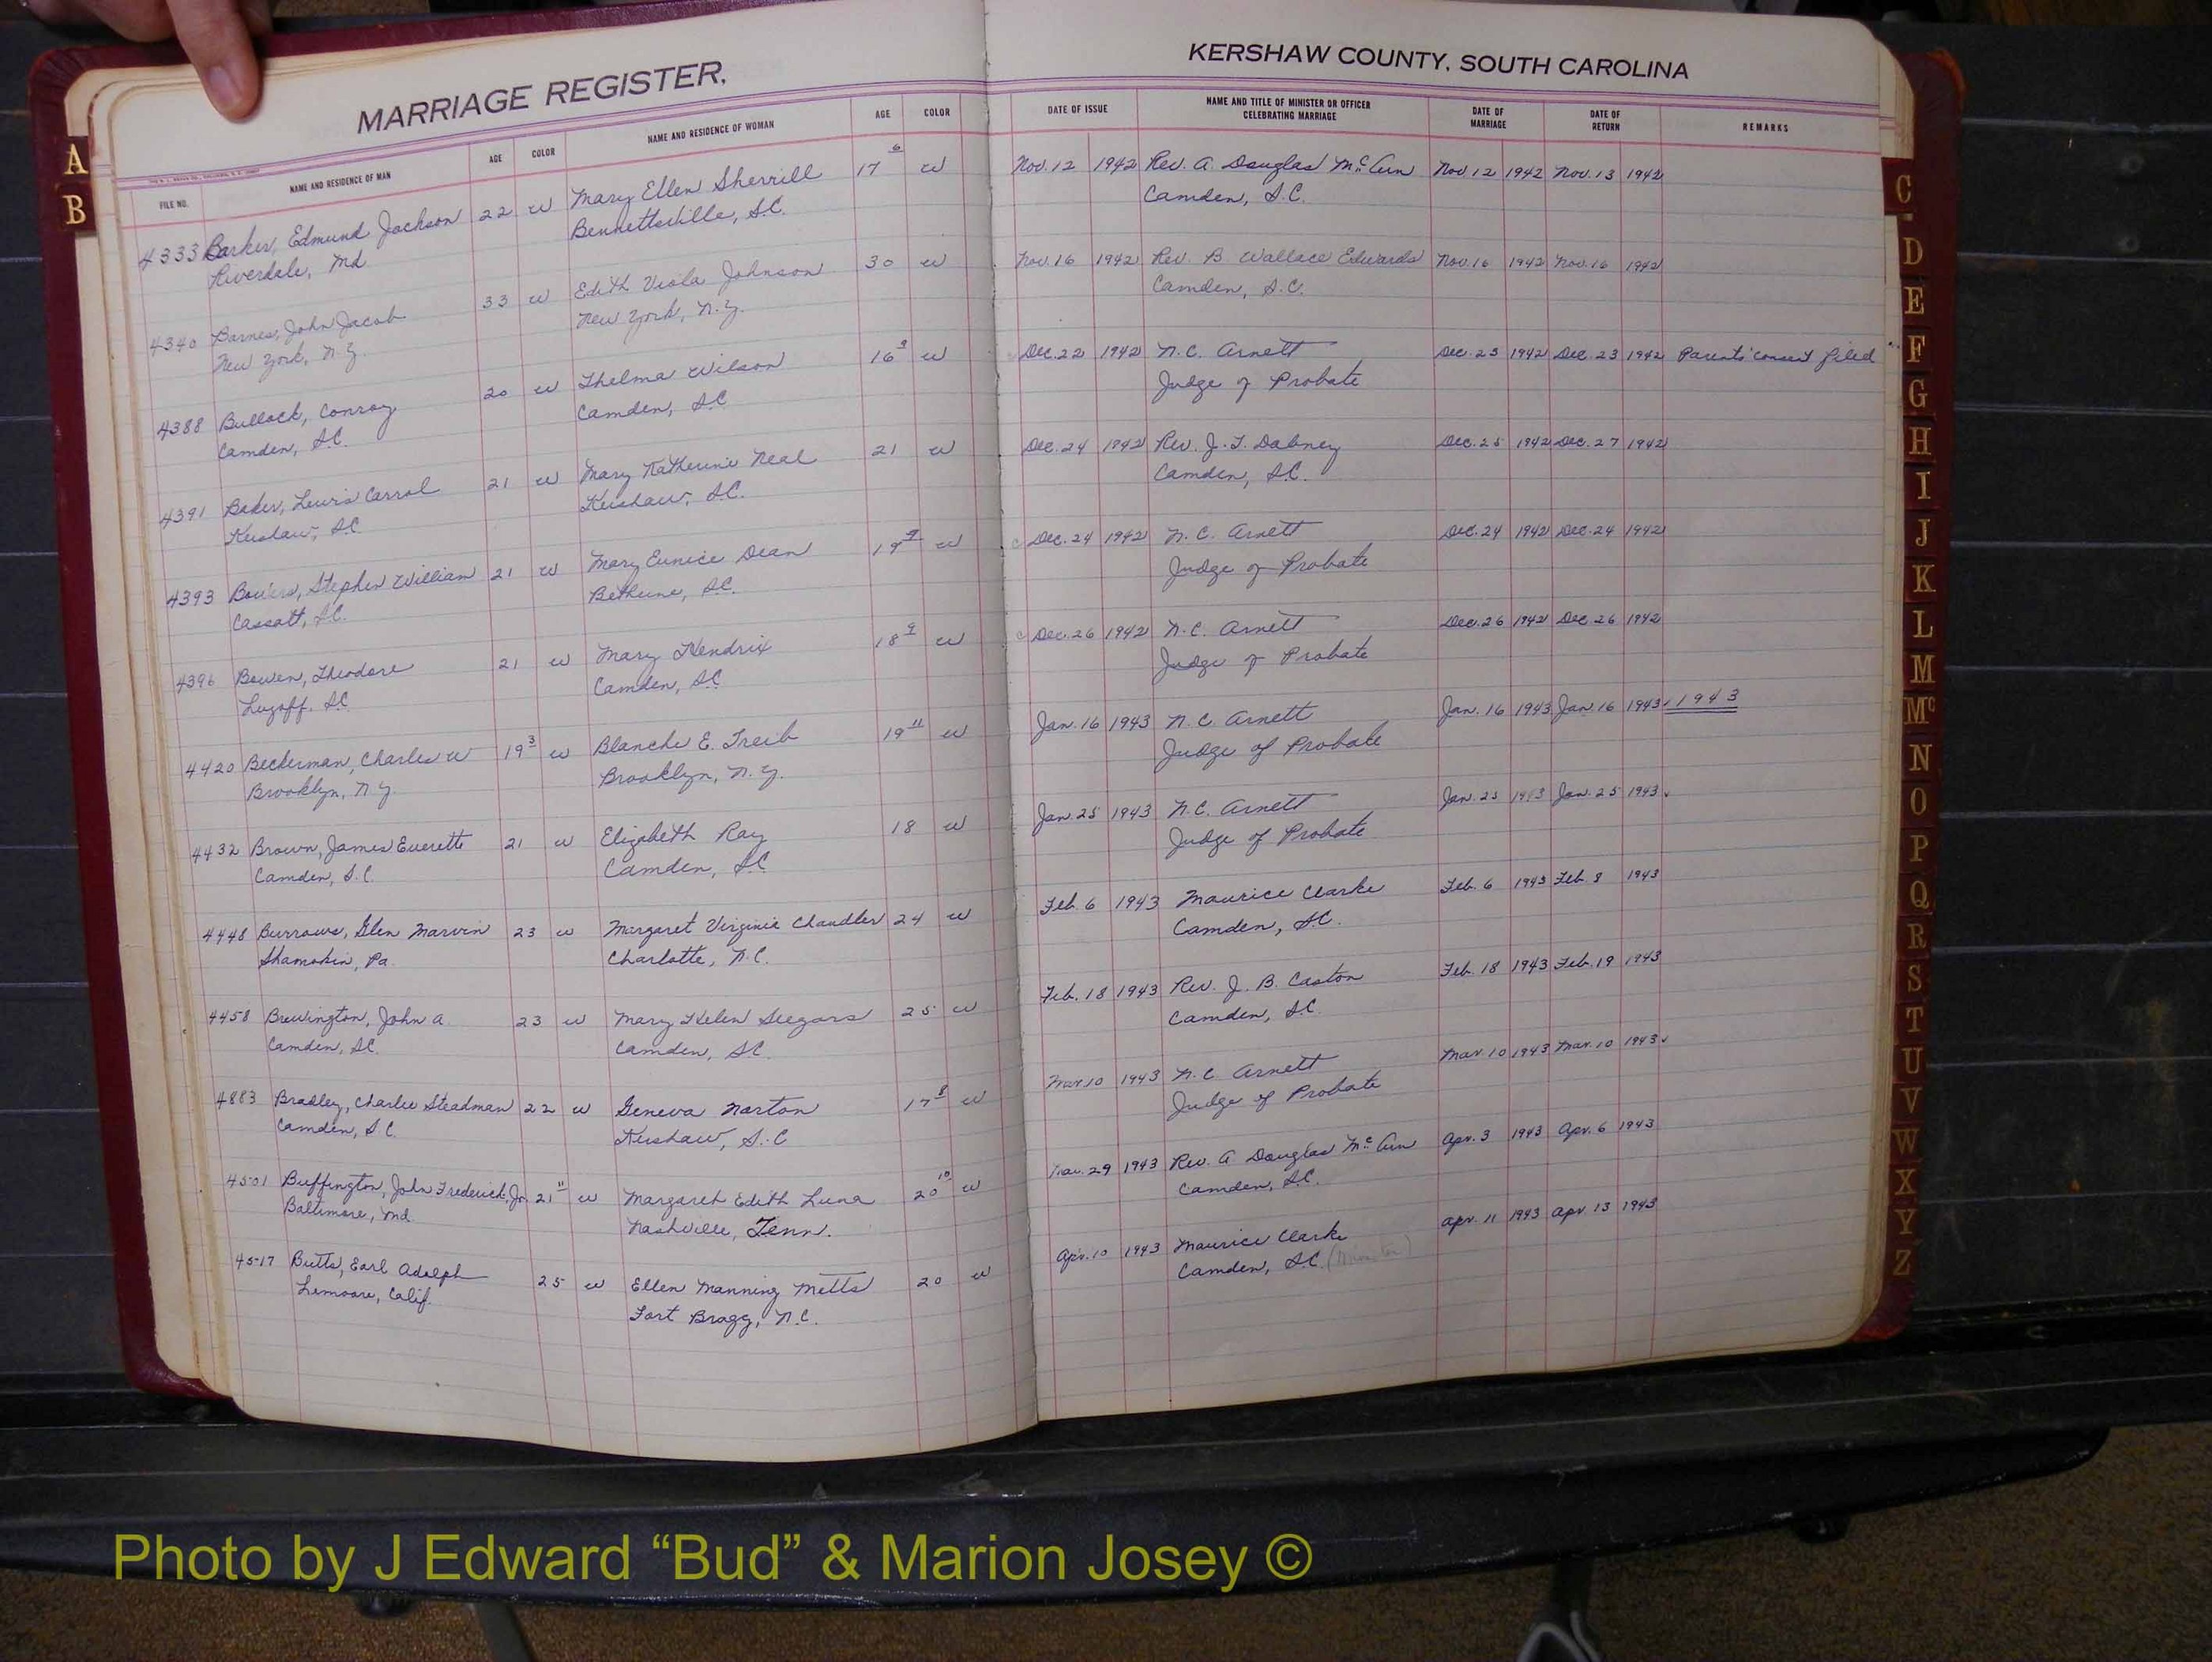 MARRIAGE REGISTER,
KERSHAW COUNTY, SOUTH CAROLINA
FILE NO. NAME AND RESIDENCE OF MAN AGE COLOR NAME AND RESIDENCE OF WOMAN AGE COLOR DATE OF ISSUE NAME AND TITLE OF MINISTER OR OFFICER CELEBRATING MARRIAGE DATE OF MARRIAGE DATE OF RETURN REMARKS
4333 Barker, Edmund Jackson 22 W Mary Ellen Sherrill 17 6 W Nov. 12 1942 Rev. A. Douglas Nov 12 1942 Nov. 13 1942
Riverdale, Md Bennettsville, S.C. Camden, S.C.
4340 Barnes, John Jacob 33 W Edith Viola Johnson 30 W Nov. 16 1942 Rev. B Wallace Edwards Nov. 16 1942 Nov. 16 1942
New York, N.Y. New York, N.Y. Camden, S.C.
4388 Bullock, Conroy 20 W Thelma Wilson 16 3 W Dec. 22 1942 N.C. Arnett Dec. 23 1942 Dec. 23 1942 Parents' consent filed
Camden, S.C. Camden, S.C. Judge of Probate
4391 Baker, Lewis Carrol 21 W Mary Katherine Neal 21 W Dec. 24 1942 Rev. J. T. Dabney Dec. 25 1942 Dec. 27 1942
Kershaw, S.C. Kershaw, S.C. Camden, S.C.
4393 Bowers, Stephen William 21 W Mary Eunice Dean 19 W Dec. 24 1942 N. C. Arnett Dec. 24 1942 Dec. 24 1942
Cassatt, S.C. Bethune, S.C. Judge of Probate
4396 Bowen, Theodore 21 W Mary Hendrix 18 9 W Dec. 26 1942 N.C. Arnett Dec. 26 1942 Dec. 26 1942
Lugoff, S.C. Camden, S.C. Judge of Probate
4420 Beckerman, Charles W 19 3 W Blanche E. Treib 19 11 W Jan. 16 1943 N. C. Arnett Jan. 16 1943 Jan 16 1943 1943
Brooklyn, N.Y. Brooklyn, N.Y. Judge of Probate
4432 Brown, James Everette 21 W Elizabeth Ray 18 W Jan. 25 1943 N.C. Arnett Jan. 25 1943 Jan. 25 1943
Camden, S.C. Camden, S.C. Judge of Probate
4448 Burrows, Glen Marvin 23 W Margaret Virginia Chandler 24 W Feb. 6 1943 Maurice Clarke Feb. 6 1943 Feb. 8 1943
Shamokin, Pa. Charlotte, N.C. Camden, S.C.
4458 Brewington, John A. 23 W Mary Helen Seegars 25 W Feb. 18 1943 Rev. J. B. Caston Feb. 18 1943 Feb. 19 1943
Camden, S.C. Camden, S.C. Camden, S.C.
4883 Bradley, Charlie Steadman 22 W Geneva Narton 17 8 W Mar. 10 1943 N.C. Arnett Mar. 10 1943 Mar. 10 1943
Camden, S.C. Kershaw, S.C Judge of Probate
4501 Buffington, John Frederick, Jr. 21 11 W Margaret Edith Luna 20 10 W Mar. 29 1943 Rev. A Douglas Apr. 3 1943 Apr. 6 1943
Baltimore, Md. Nashville, Tenn. Camden, S.C.
4517 Butts, Earl Adolph 25 W Ellen Manning Metts 20 W Apr. 10 1943 Maurice Clarke Apr. 11 1943 Apr. 13 1943
Lemoore, Calif. Fort Bragg, N.C. Camden, S.C. (Minister)
A
B
C
D
E
F
G
H
I
J
K
L
M
Mc
N
O
P
Q
R
S
T
U
V
W
X
Y
Z
Photo by J Edward “Bud” & Marion Josey ©